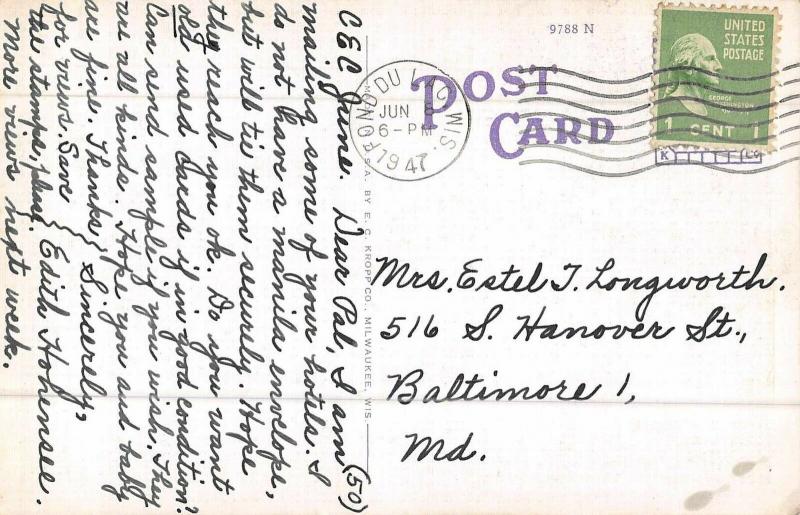 CEC June. Dear Pal, I am (50)
mailing some of your hotels. I
do not have a manila envelope,
but will tie them securely. Hope
they reach you ok. Do you want
old used cards if in good condition?
Can send sample if you wish. They
are all kinds. Hope you and baby
are fine. Thanks } Sincerely,
for views. Save } Edith Hohensee.
the stamps, please.
More views next week.
MADE IN U.S.A. BY E. C. KROPP CO., MILWAUKEE, WIS.
9788 N
POST
CARD
FOND DU LAC WIS.
JUN
6-PM
1947
UNITED
STATES
POSTAGE
GEORGE
WASHINGTON
1 CENT 1
K LG
Mrs. Estel T. Longworth.
516 S. Hanover St.,
Baltimore 1,
Md.